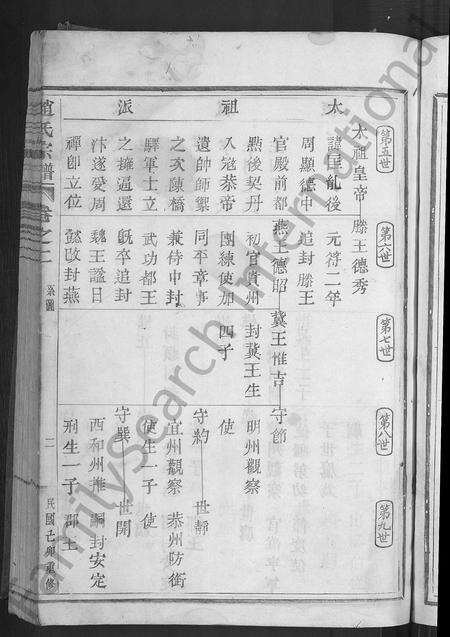 第五世
第六世
第七世
第八世
第九世
太祖派
太祖皇帝 滕王德秀
諱匡胤後 元符二年
周顯德中 追封滕王
官殿前都 燕王德昭 冀王惟吉 守節
點後契丹 初官貴州 封冀王生 明州觀察
入寇恭帝 團練使加 四子 使
遺帥師禦 同平章事 守約 世靜
之次陳橋 兼侍中封 宜州觀察 恭州防銜
驛軍士立 武功都王 使生一子 使
之擁逼還 既卒追封 守巽 世開
汴遂愛周 魏王諡曰 西和州推 嗣封安定
禪即立位 懿改封燕 刑生一子 郡王
趙氏宗譜
卷之二
系圖
二
民國己卯重修
FamilySearch International